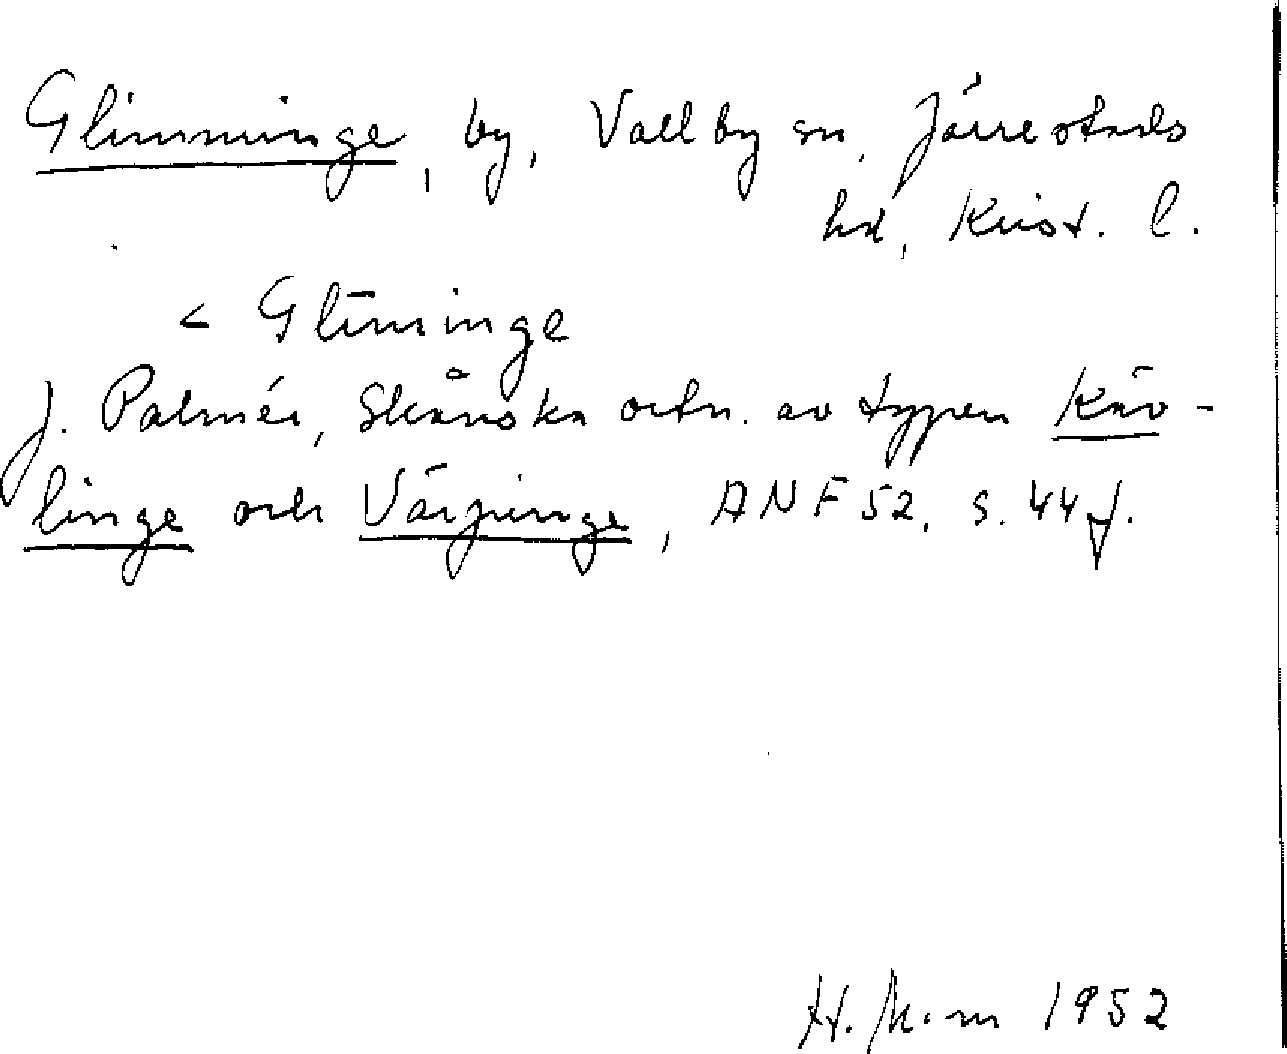 Glimminge, by, Vallby sn, Järrestads
hd, Krist. l.
< Glīminge
J. Palmér, Skånska ortn. av typen Käv-
linge och Värpinge, ANF 52, s. 44 f.
1952